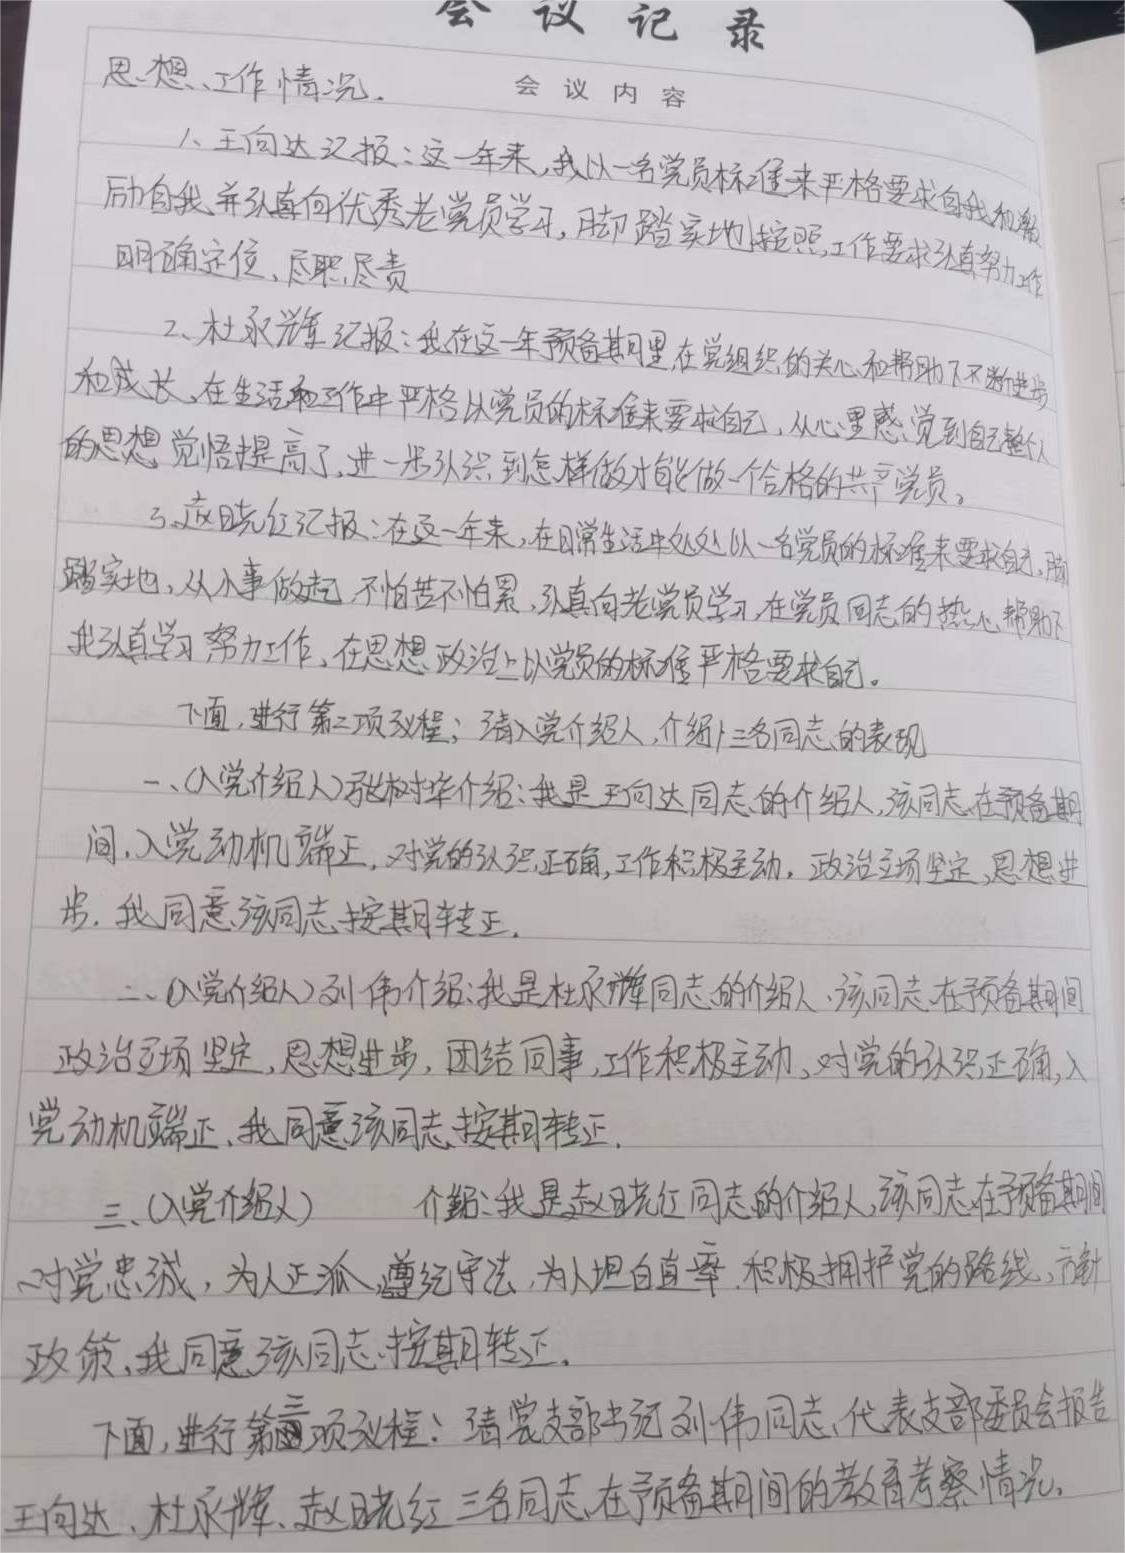 会议记录
会议内容
思想、工作情况.
1、王向达汇报：这一年来,我以一名党员标准来严格要求自我,和激
励自我,并认真向优秀老党员学习,脚踏实地,按照工作要求认真努力工作
明确定位、尽职尽责
2、杜永辉汇报：我在这一年预备期里,在党组织的关心和帮助下不断进步
和成长、在生活和工作中严格以党员的标准来要求自己,从心里感觉到自己整个人
的思想觉悟提高了,进一步认识到怎样做才能做一个合格的共产党员。
3、赵晓红汇报：在这一年来,在日常生活中处处以一名党员的标准来要求自己,脚
踏实地,从小事做起,不怕苦不怕累,认真向老党员学习,在党员同志的热心帮助下
我认真学习努力工作、在思想政治上以党员的标准严格要求自己。
下面,进行第二项议程；请入党介绍人,介绍三名同志的表现
一、(入党介绍人)张树华介绍：我是王向达同志的介绍人,该同志在预备期
间,入党动机端正,对党的认识正确,工作积极主动,政治立场坚定、思想进
步.我同意该同志按期转正.
二、(入党介绍人)刘伟介绍：我是杜永辉同志的介绍人、该同志在预备期间
政治立场坚定,思想进步,团结同事,工作积极主动、对党的认识正确,入
党动机端正、我同意该同志按期转正.
三、(入党介绍人) 介绍：我是赵晓红同志的介绍人,该同志在预备期间
对党忠诚,为人正派,遵纪守法,为人坦白直率.积极拥护党的路线、方针
政策、我同意该同志按期转正.
下面,进行第三项议程：请党支部书记刘伟同志、代表支部委员会报告
王向达、杜永辉、赵晓红三名同志在预备期间的教育考察情况.